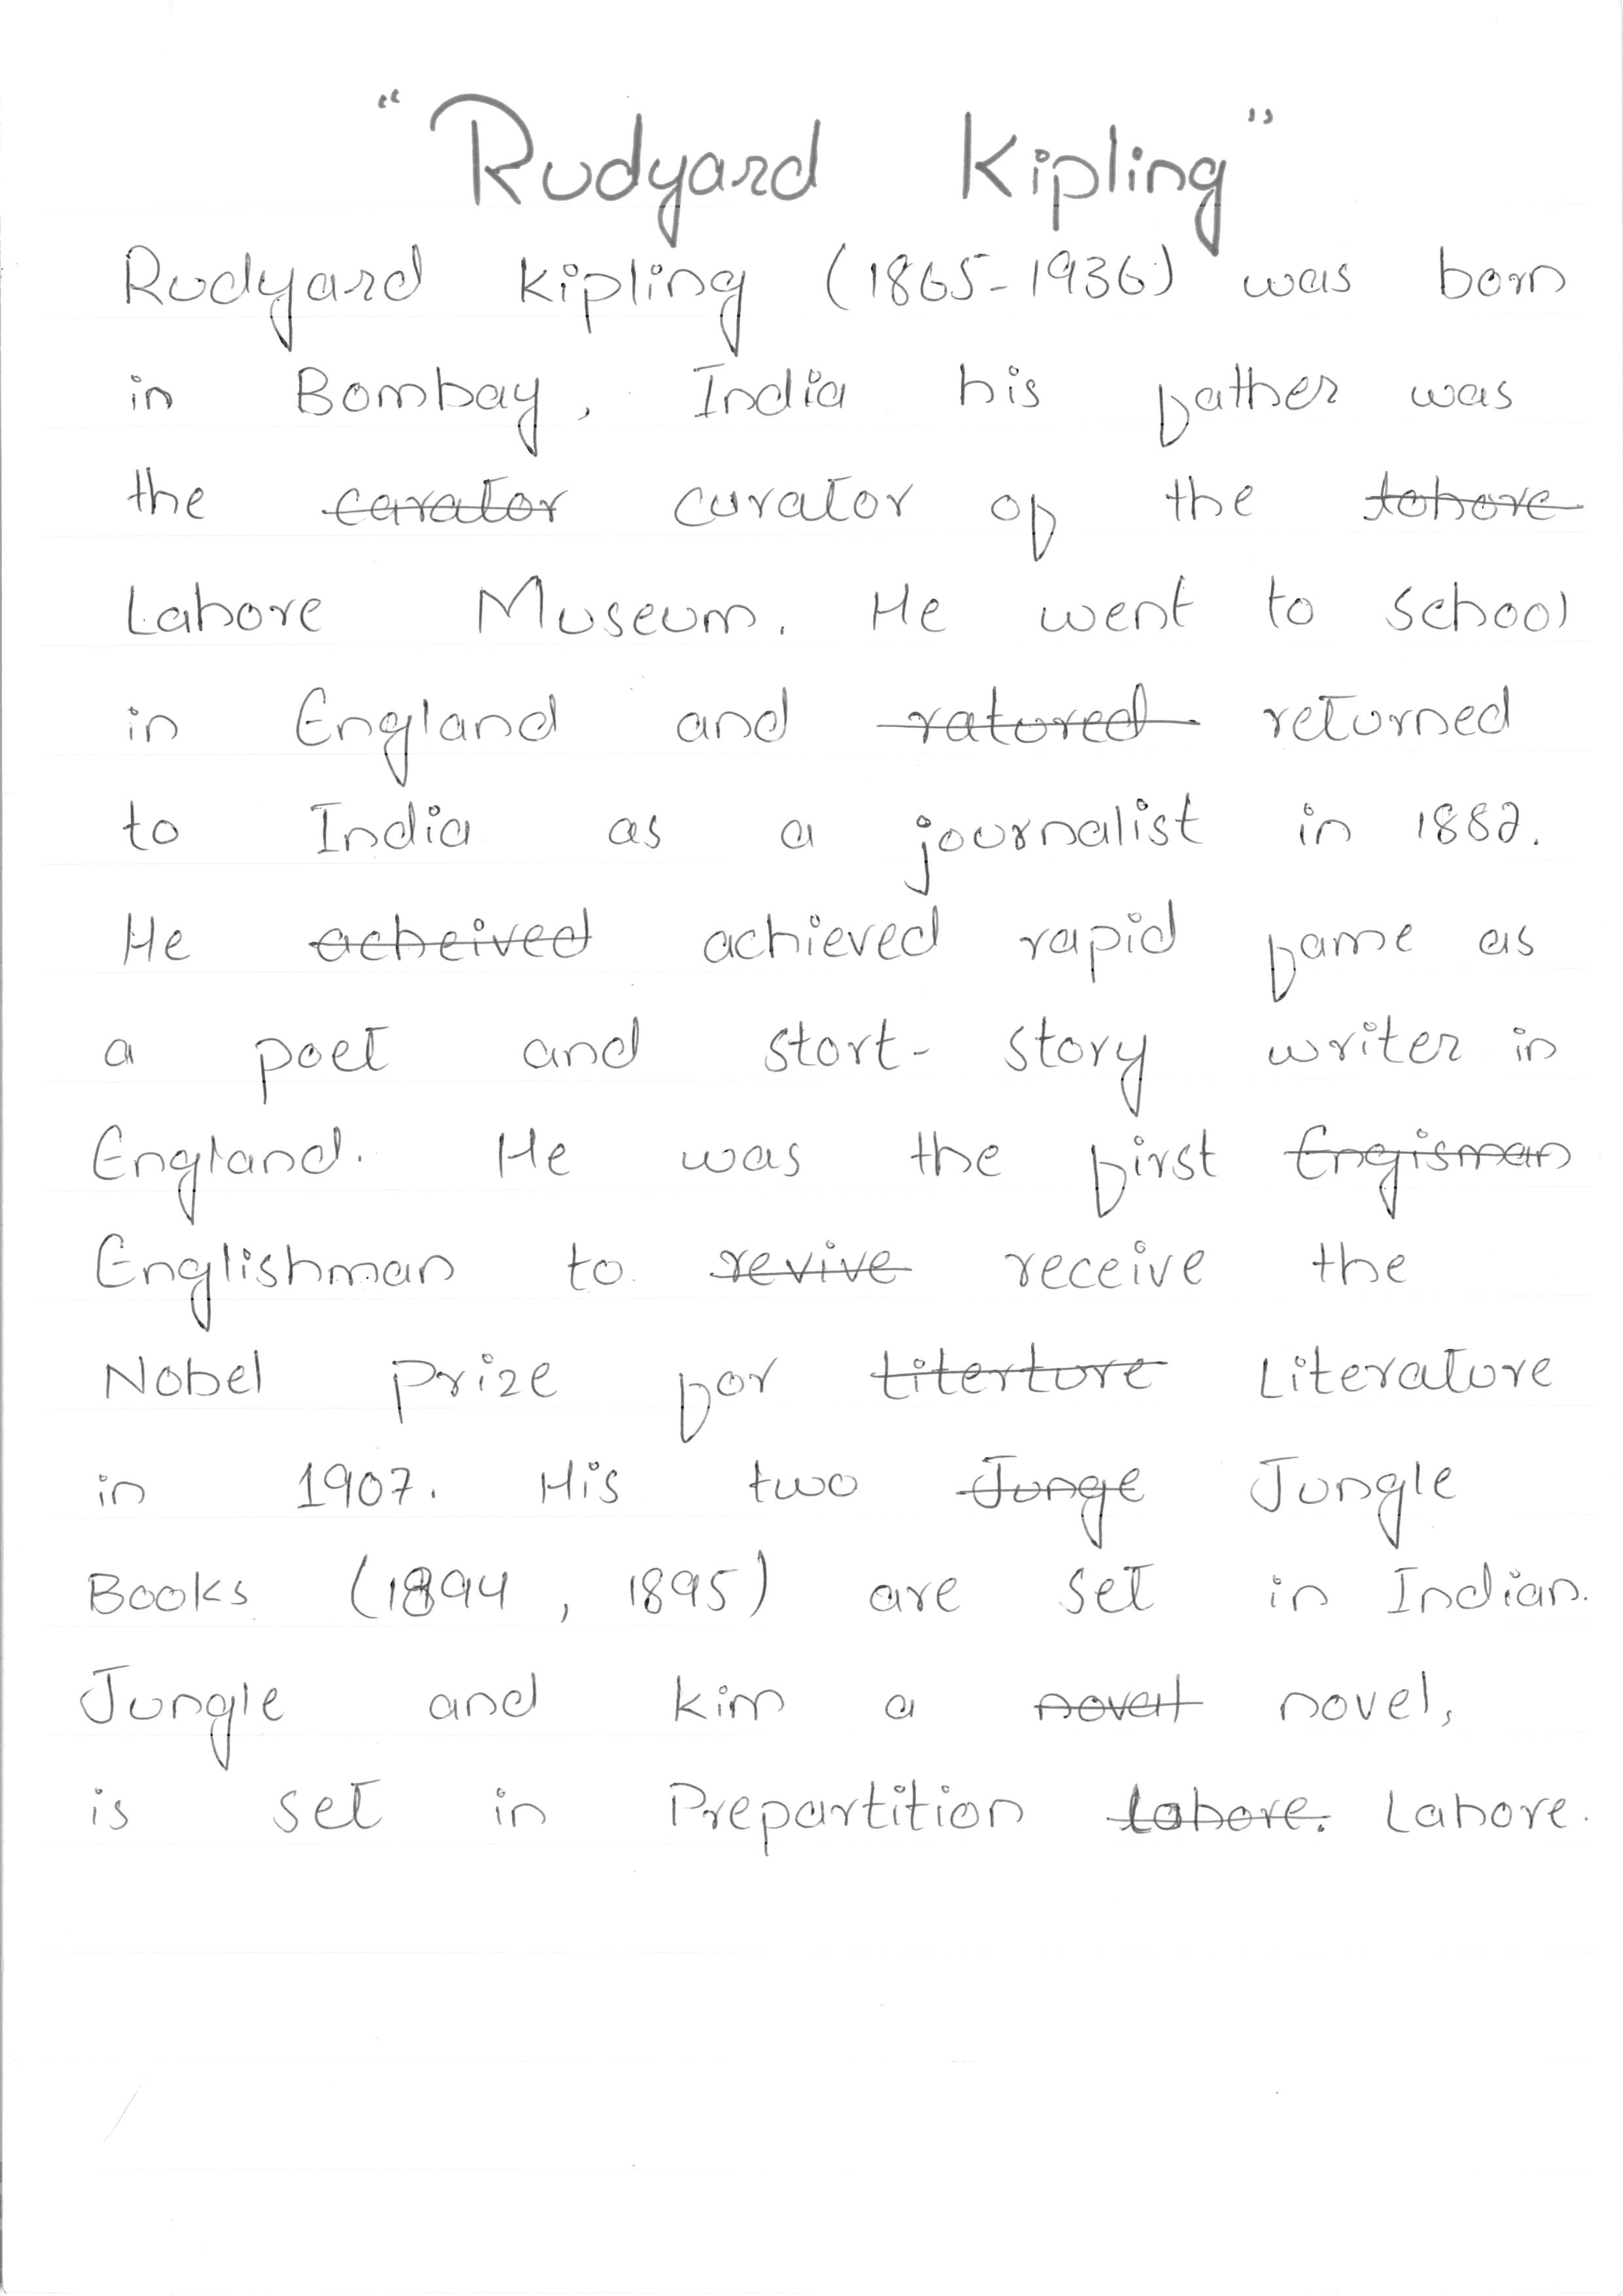 "Rudyard Kipling"
Rudyard Kipling (1865-1936) was born
in Bombay, India his father was
the carator curator of the lohore
Lahore Museum. He went to school
in England and ratured returned
to India as a journalist in 1882.
He acheived achieved rapid fame as
a poet and stort- story writer in
England. He was the first Engisman
Englishman to revive receive the
Nobel prize for Literture Literature
in 1907. His two Junge Jungle
Books (1894, 1895) are set in Indian.
Jungle and kim a novel novel,
is set in Prepartition Lohore. Lahore.